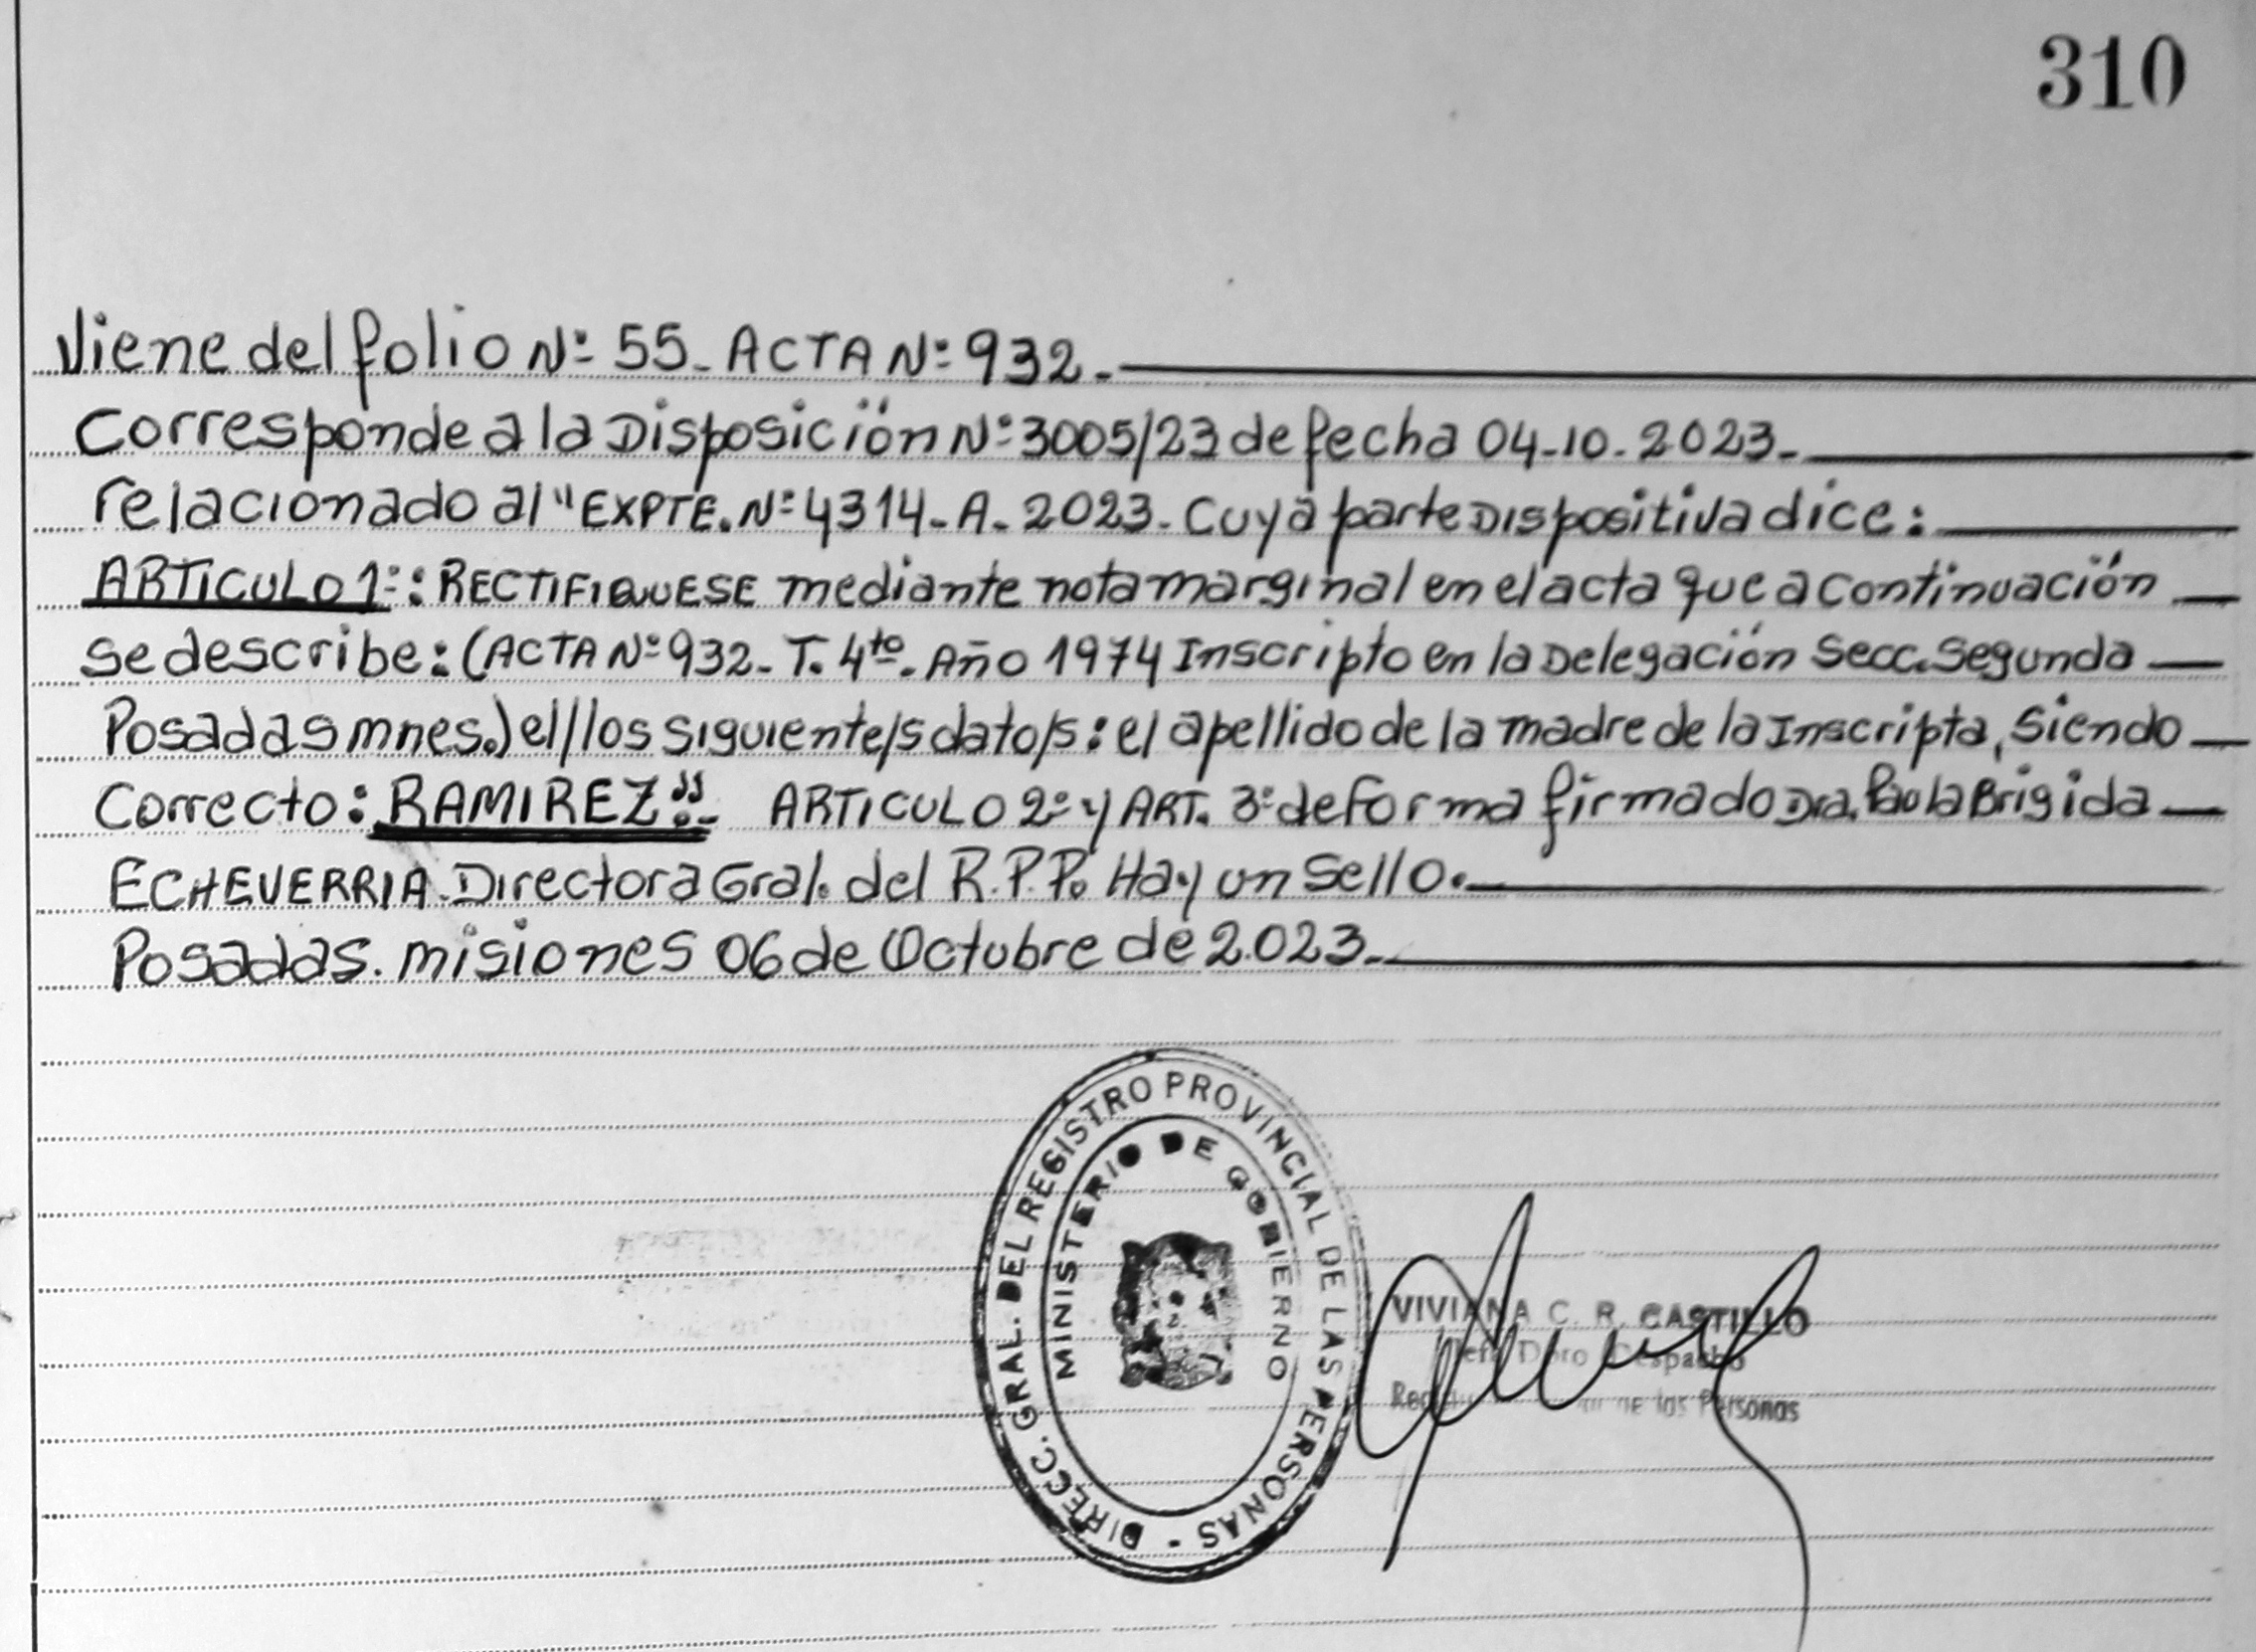 310
Viene del folio Nº 55_ ACTA Nº 932._
Corresponde a la Disposición Nº 3005/23 de fecha 04-10-2023._
relacionado al "EXPTE. Nº 4314-A-2023. Cuya parte Dispositiva dice:
ARTICULO 1º: RECTIFIQUESE mediante nota marginal en el acta que a continuación
se describe: (ACTA Nº 932_ T. 4to. Año 1974 Inscripto en la Delegación Secc. Segunda
Posadas mnes.) el/los siguiente/s dato/s: el apellido de la madre de la Inscripta, siendo
Correcto: RAMIREZ"._ ARTICULO 2º y ART. 3º de forma firmado Dra. Paola Brigida
ECHEVERRIA. Directora Gral. del R.P.P. Hay un Sello.
Posadas. misiones 06 de Octubre de 2023._
DIRECC. GRAL. DEL REGISTRO PROVINCIAL DE LAS PERSONAS -
MINISTERIO DE GOBIERNO
VIVIANA C. R. CASTILLO
Despacho
de las Personas